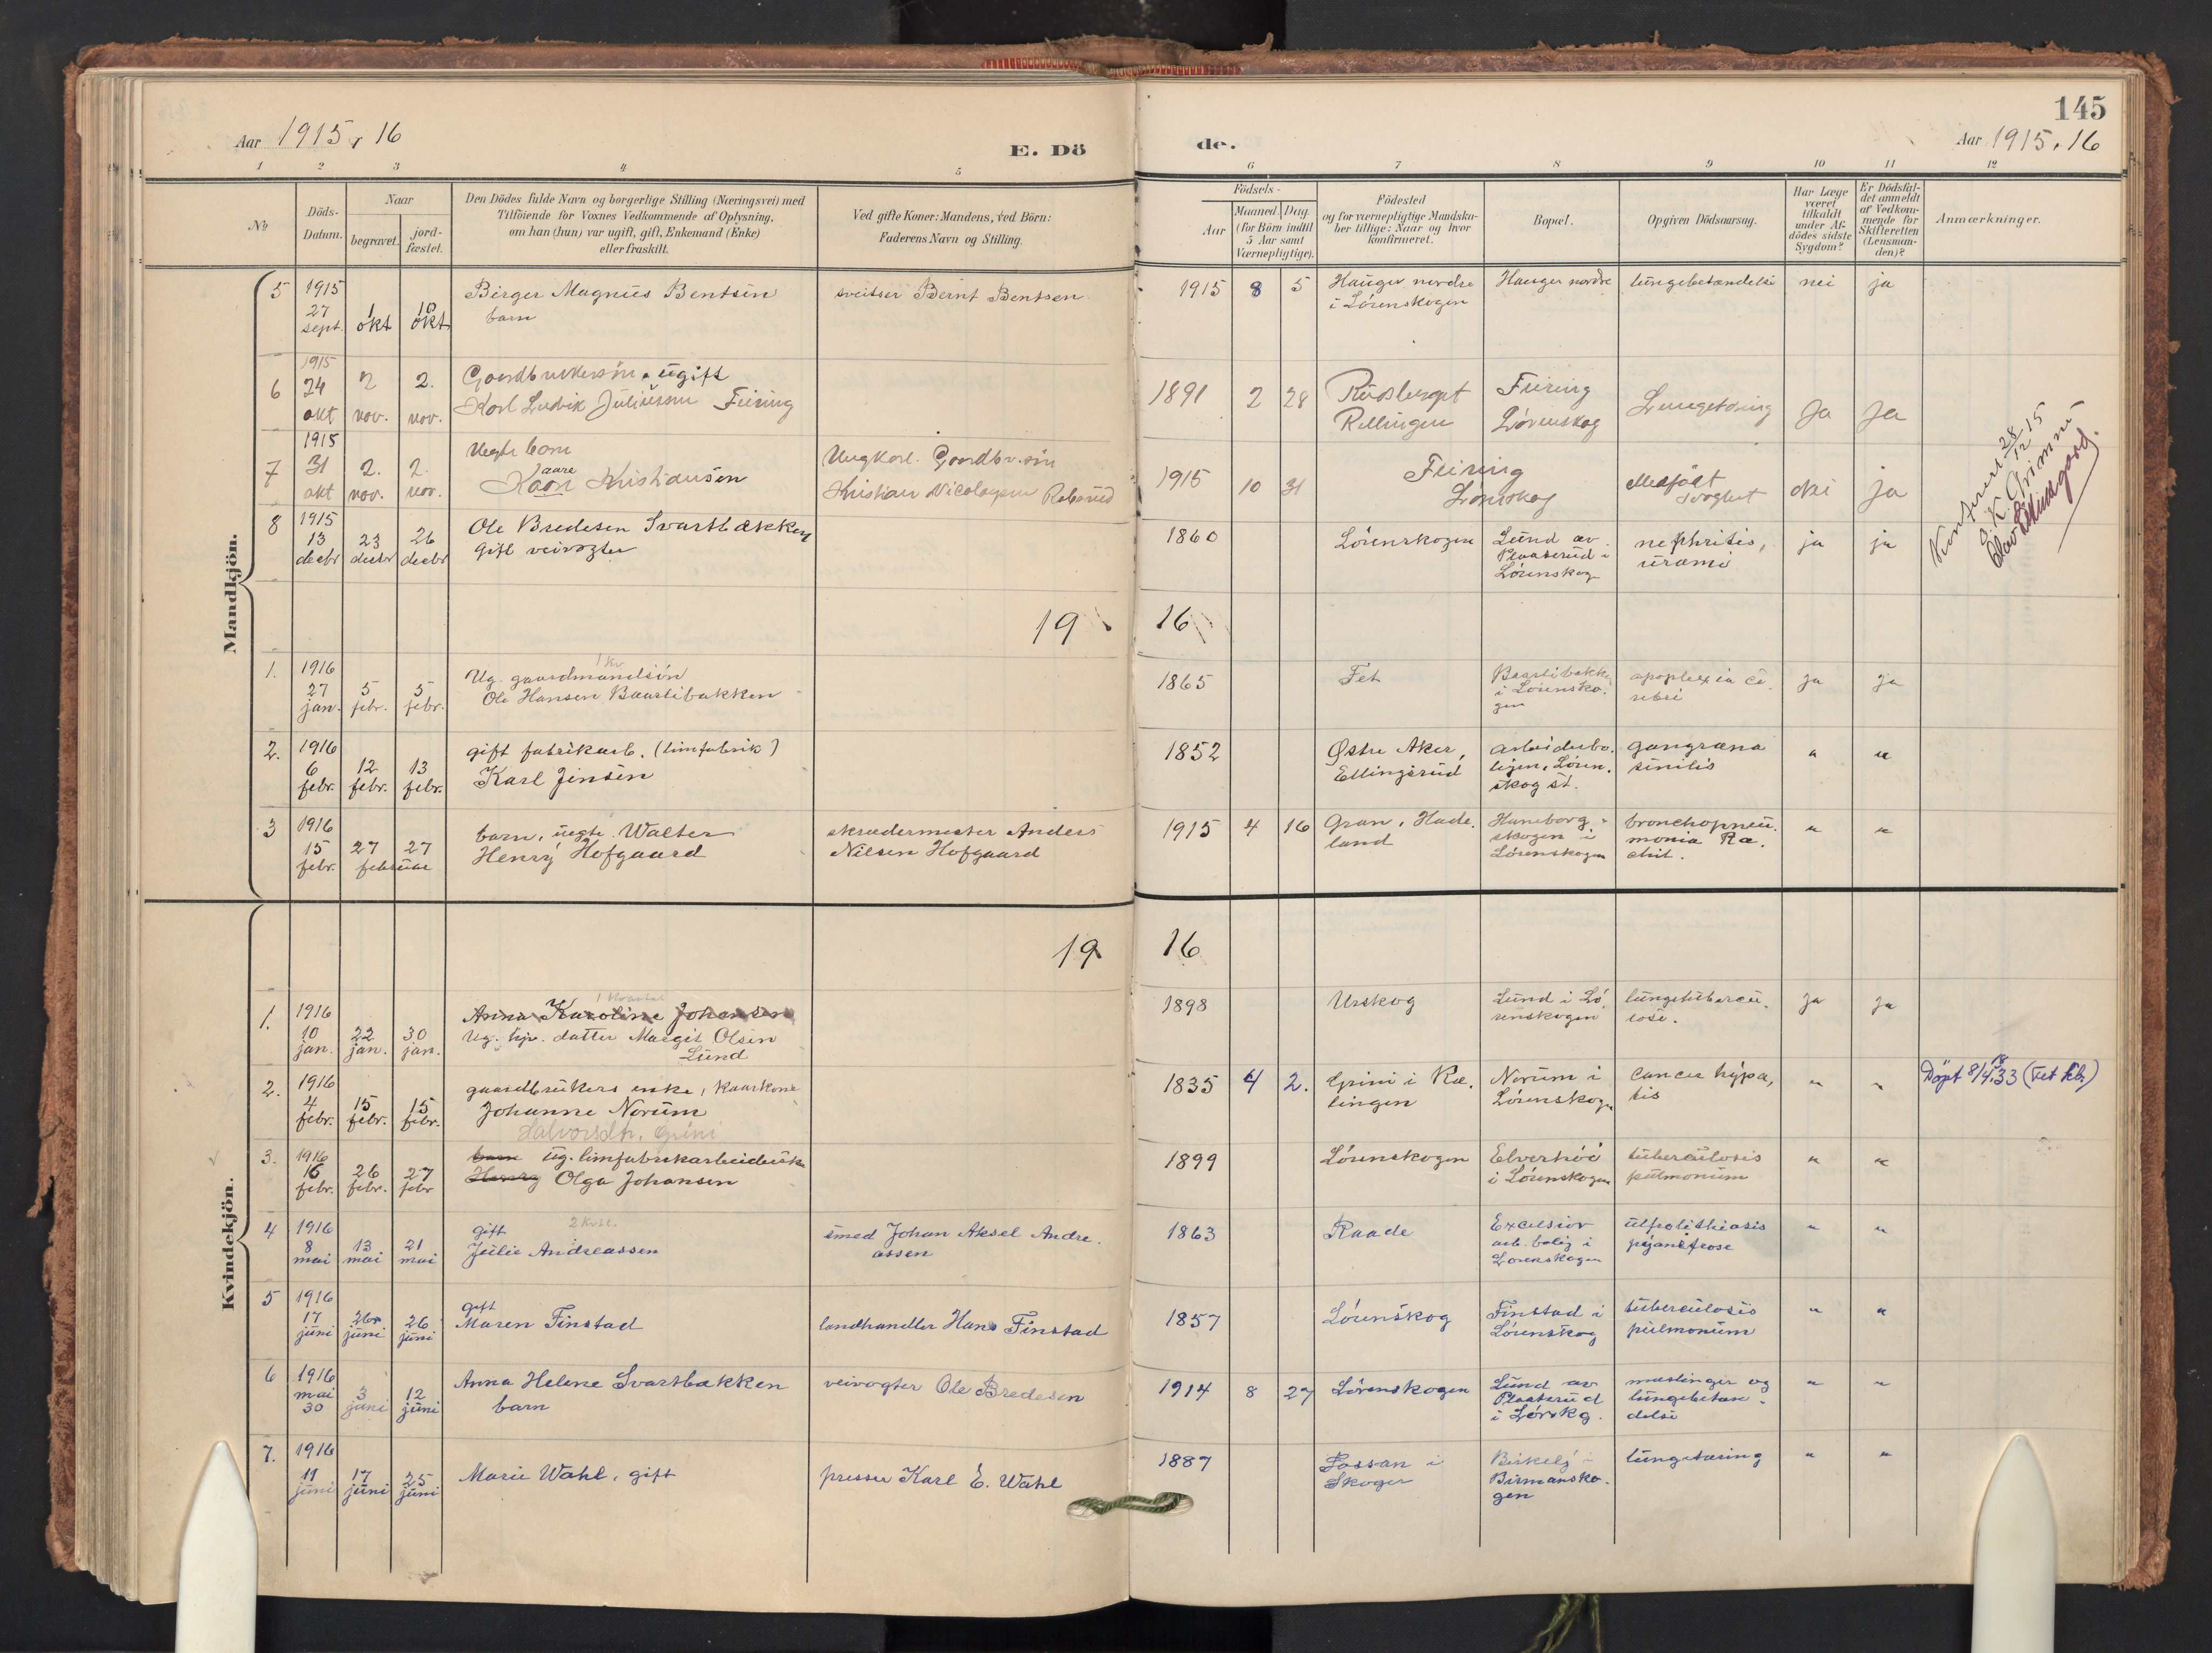 145
Aar 1915 16
E. Dö
de.
Aar 1915. 16
1 2 3 4 5 6 7 8 9 10 11 12
No
Döds-
Datum.
Naar
begravet.
jord-
fæstet.
Den Dödes fulde Navn og borgerlige Stilling (Næringsvei) med
Tilföiende for Voxnes Vedkommende af Oplysning,
om han (hun) var ugift, gift, Enkemand (Enke)
eller fraskilt.
Ved gifte Koner: Mandens, ved Börn:
Faderens Navn og Stilling.
Födsels-
Aar
Maaned. Dag
(for Börn indtil
5 Aar samt
Værnepligtige).
Födested
og for værnepligtige Mandska-
ber tillige: Naar og hvor
konfirmeret.
Bopæl.
Opgiven Dödsaarsag.
Har Læge
været
tilkaldt
under Af-
dödes sidste
Sygdom?
Er Dödsfal-
det anmeldt
af Vedkom-
mende for
Skifteretten
(Lensman-
den)?
Anmærkninger.
Mandkjön.
5 1915
27 sept. 1 okt 10 okt
Birger Magnus Bentsen
barn
sveitser Bernt Bentsen
1915 8 5
Hauger nordre
i Lørenskogen
Hauger nordre
lungebetændelse
nei ja
6 1915
24 okt 2 nov. 2. nov.
Gaardbrukersøn. ugift
Karl Ludvik Juliussen Feiring
1891 2 28
Rudsberget
Rellingen
Feiring
Lørenskog
Lungetæring
Ja Ja
7 1915
31 okt 2. nov. 2. nov.
Uegte barn
Kaare
Kaar Kristiansen
Ungkarl. Gaardbr. søn
Kristian Nicolaysen
1915 10 31
Feiring
Lørenskog
Medfødt
svaghet
Nei ja
8 1915
13 decbr 23 decbr 26 decbr
Ole Bredesen Svartbækken
Gift veivogter
1860
Lørenskogen
Lund av
Plaaterud i
Lørenskog
nephritis,
uræmi
ja ja
Konferert 28/12 15
J. K. Grimme
19 16
1. 1916
27 jan. 5 febr. 5 febr.
1 kv
Ug. gaardmandssøn
Ole Hansen Baastibakken
1865
Fet
Baastibakken
i Lørensko-
gen
apoplexia ce-
rebri
ja ja
2. 1916
6 febr. 12 febr. 13 febr.
gift fabrikarb. (limfabrik)
Karl Jensen
1852
Østre Aker,
Ellingsrud
arbeiderbo-
ligen, Løren-
skog st.
gangræna
senilis
" "
3 1916
15 febr. 27 27 februar
barn, uegte. Walter
Henry Hofgaard
skrædermester Anders
Nilsen Hofgaard
1915 4 16
Gran, Hade-
land
Haneborg-
skogen i
Lørenskogen
bronchopneu-
monia Ra-
chit.
" "
Kvindekjön.
19 16
1. 1916
10 jan. 22 jan. 30 jan.
1 kvartal
Anna Karoline Johansen
Ug. hjv. datter Margit Olsen
Lund
1898
Urskog
Lund i Lø-
renskogen
lungetubercu-
lose.
ja ja
2. 1916
4 febr. 15 febr. 15 febr.
gaardbrukers enke, kaarkone
Johanne Norum
Halvorsdtr. Grini
1835 4 2.
Grini i Ræ-
lingen
Norum i
Lørenskogen
cancer hepa-
tis
" "
Döpt 8/4 1833 (Fet kb.)
3. 1916
16 febr. 26 febr. 27 febr
barn ug. limfabrikarbeiderske
Henry Olga Johansen
1899
Lørenskogen
Elverhøi
i Lørenskogen
tuberculosis
pulmonum
" "
4 1916
8 mai 13 mai 21 mai
gift 2 kvt.
Julie Andreassen
smed Johan Aksel Andre-
assen
1863
Raade
Excelsior
arb. bolig i
Lørenskogen
" "
5 1916
17 juni 26 juni 26 juni
gift
Maren Finstad
landhandler Hans Finstad
1857
Lørenskog
Finstad i
Lørenskog
tuberculosis
pulmonum
" "
6 1916
mai 30 3 juni 12 juni
Anna Helene Svartbækken
barn
veivogter Ole Bredesen
1914 8 27
Lørenskogen
Lund av
Plaaterud
i Lørskg.
meslinger og
lungebetæn-
delse
" "
7. 1916
11 juni 17 juni 25 juni
Marie Wahl, gift
presser Karl E. Wahl
1887
Skoger
Birkely i
Birmansko-
gen
lungetæring
" "